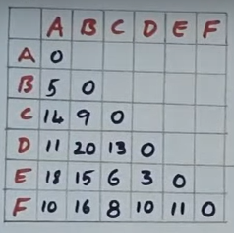 A B C D E F
A 0
B 5 0
C 14 9 0
D 11 20 13 0
E 18 15 6 3 0
F 10 16 8 10 11 0